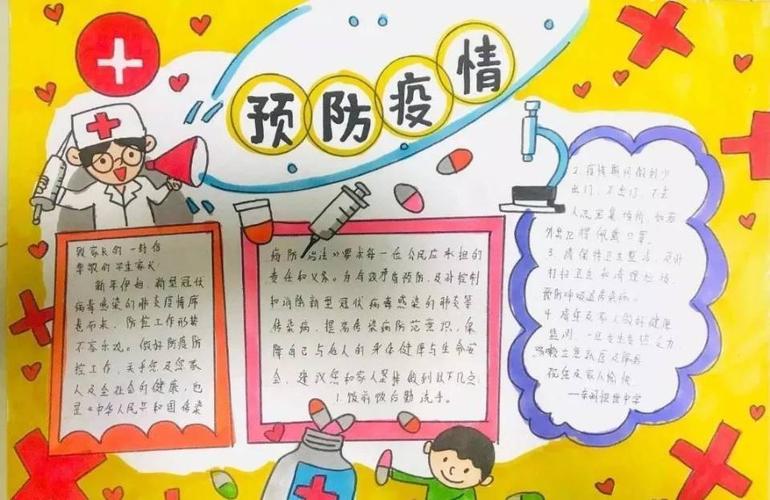 预防疫情
致家长的一封信
尊敬的学生家长
新年伊始,新型冠状
病毒感染的肺炎疫情席
卷而来,防控工作形势
不容乐观。做好防疫防
控工作,关乎您及您家
人及全社会的健康,也
是《中华人民共和国传染
病防治法》要求每一位公民应承担的
责任和义务。为有效预防、及时控制
和消除新型冠状病毒感染的肺炎等
传染病,提高传染病防范意识,保
障自己与他人的身体健康与生命安
全,建议您和家人坚持做到以下几点:
1.饭前饭后勤洗手。
2.疫情期间做到少
出门,不出门,不去
人流密集场所,如若
外出记得佩戴口罩。
3.请保持卫生整洁,及时
打扫卫生和清理垃圾,
预防呼吸道传染病。
4.请年及家人做好健康
监测,一旦发生发热乏力
咳嗽立
祝您及家人愉快